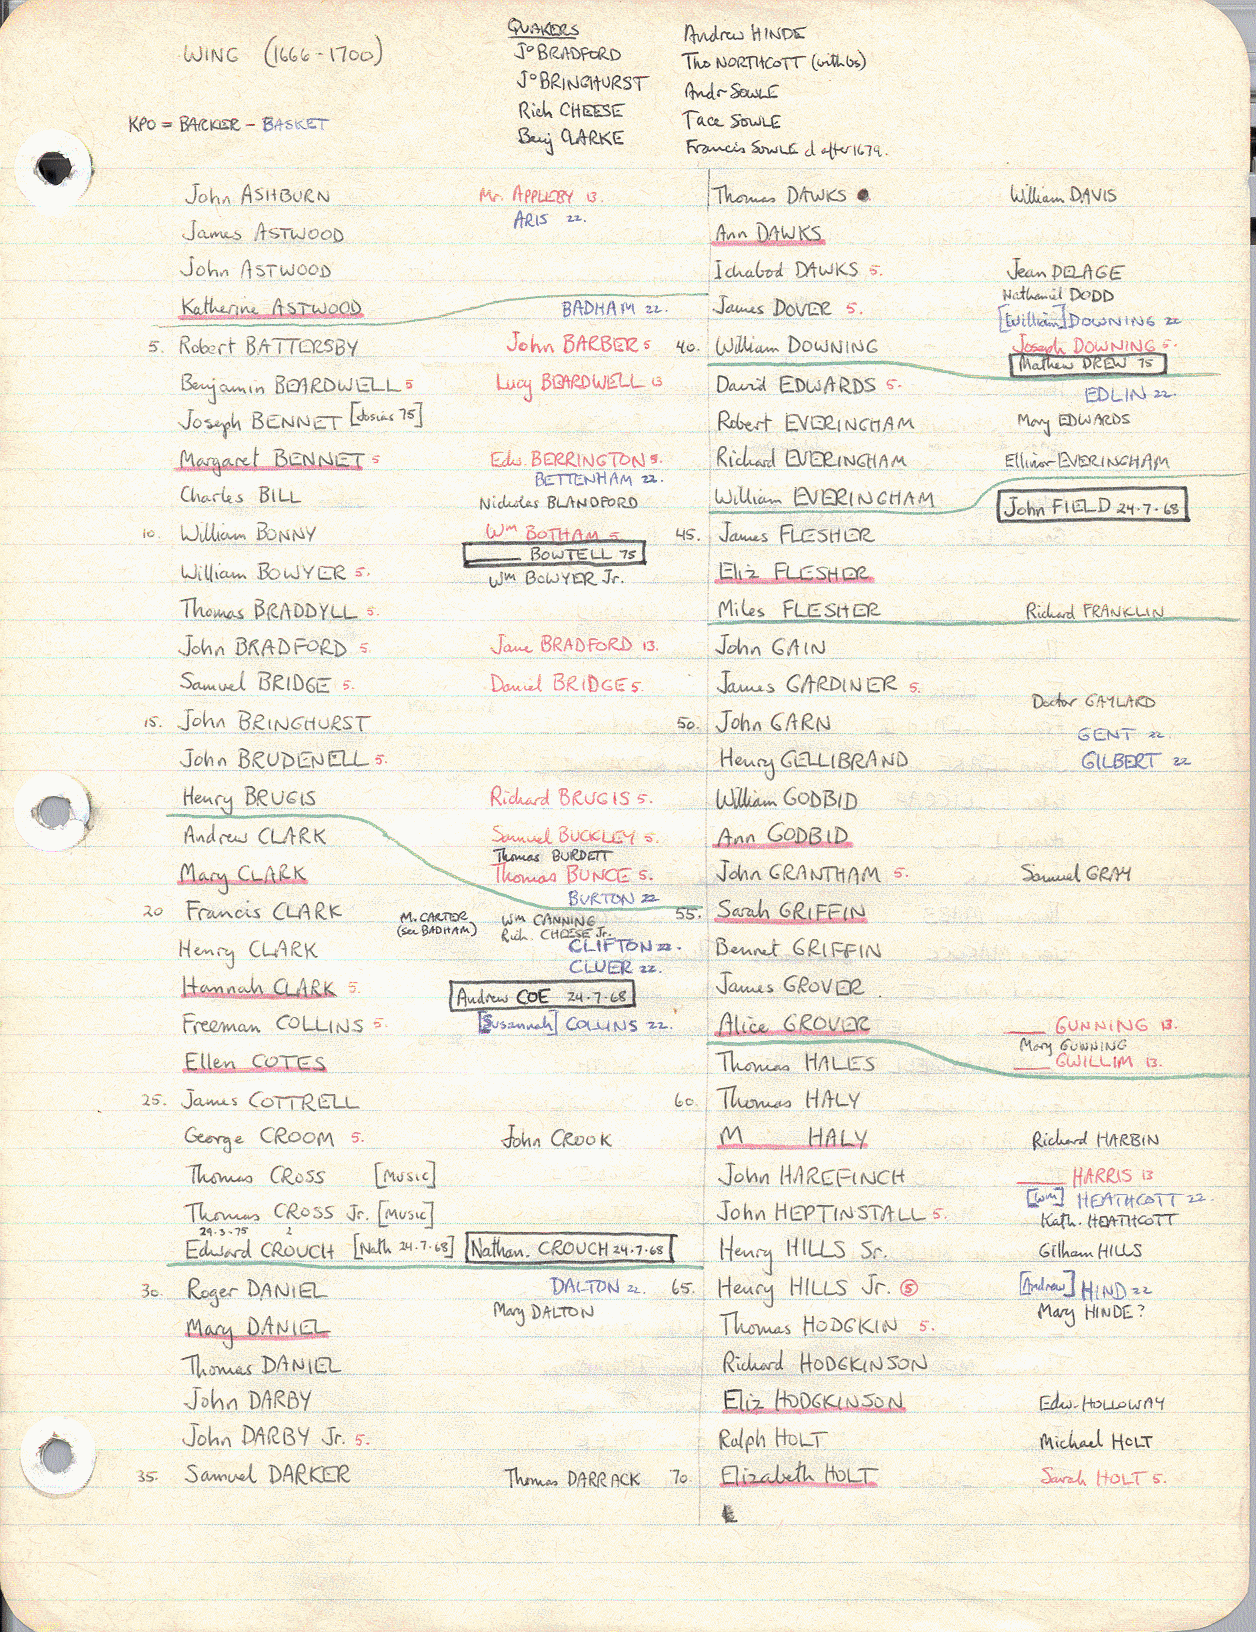 WING (1666-1700)
KPO = BARKER - BASKET
QUAKERS
Jº BRADFORD
Jº BRINGHURST
Rich CHEESE
Benj CLARKE
Andrew HINDE
Tho NORTHCOTT (with bs)
Andr SOWLE
Tace SOWLE
Francis SOWLE d after 1679.
John ASHBURN
James ASTWOOD
John ASTWOOD
Katherine ASTWOOD
5. Robert BATTERSBY
Benjamin BEARDWELL 5
Joseph BENNET [Josias 75]
Margaret BENNET 5
Charles BILL
10. William BONNY
William BOWYER 5.
Thomas BRADDYLL 5.
John BRADFORD 5
Samuel BRIDGE 5.
15. John BRINGHURST
John BRUDENELL 5.
Henry BRUGIS
Andrew CLARK
Mary CLARK
20 Francis CLARK
Henry CLARK
Hannah CLARK 5.
Freeman COLLINS 5.
Ellen COTES
25. James COTTRELL
George CROOM 5.
Thomas CROSS [Music]
Thomas CROSS Jr. [Music]
29.3.75 ?
Edward CROUCH [Nath 24.7.68]
30. Roger DANIEL
Mary DANIEL
Thomas DANIEL
John DARBY
John DARBY Jr. 5.
35. Samuel DARKER
Mr. APPLEBY 13.
ARIS 22.
BADHAM 22.
John BARBER 5
Lucy BEARDWELL 13
Edw. BERRINGTON 5.
BETTENHAM 22.
Nicholas BLANDFORD
Wm BOTHAM 5
____ BOWTELL 75
Wm BOWYER Jr.
Jane BRADFORD 13.
Daniel BRIDGE 5.
Richard BRUGIS 5.
Samuel BUCKLEY 5.
Thomas BURDETT
Thomas BUNCE 5.
BURTON 22
M. CARTER
(see BADHAM)
Wm CANNING
Rich. CHEESE Jr.
CLIFTON 22.
CLUER 22.
Andrew COE 24.7.68
[Susannah] COLLINS 22.
John CROOK
Nathan. CROUCH 24.7.68
DALTON 22.
Mary DALTON
Thomas DARRACK
Thomas DAWKS
Ann DAWKS
Ichabod DAWKS 5.
James DOVER 5.
40. William DOWNING
David EDWARDS 5.
Robert EVERINGHAM
Richard EVERINGHAM
William EVERINGHAM
45. James FLESHER
Eliz FLESHER
Miles FLESHER
John GAIN
James GARDINER 5.
50. John GARN
Henry GELLIBRAND
William GODBID
Ann GODBID
John GRANTHAM 5.
55. Sarah GRIFFIN
Bennet GRIFFIN
James GROVER
Alice GROVER
Thomas HALES
60. Thomas HALY
M____ HALY
John HAREFINCH
John HEPTINSTALL 5.
Henry HILLS Sr.
65. Henry HILLS Jr. 5
Thomas HODGKIN 5.
Richard HODGKINSON
Eliz HODGKINSON
Ralph HOLT
70 Elizabeth HOLT
William DAVIS
Jean DELAGE
Nathaniel DODD
[William] DOWNING 22
Joseph DOWNING 5.
Mathew DREW 75
EDLIN 22.
Mary EDWARDS
Ellinor EVERINGHAM
John FIELD 24.7.68
Richard FRANKLIN
Doctor GAYLARD
GENT 22.
GILBERT 22
Samuel GRAY
____ GUNNING 13.
Mary GUNNING
____ GWILLIM 13.
Richard HARBIN
____ HARRIS 13
[Wm] HEATHCOTT 22.
Kath. HEATHCOTT
Gilham HILLS
[Andrew] HIND 22
Mary HINDE?
Edw. HOLLOWAY
Michael HOLT
Sarah HOLT 5.